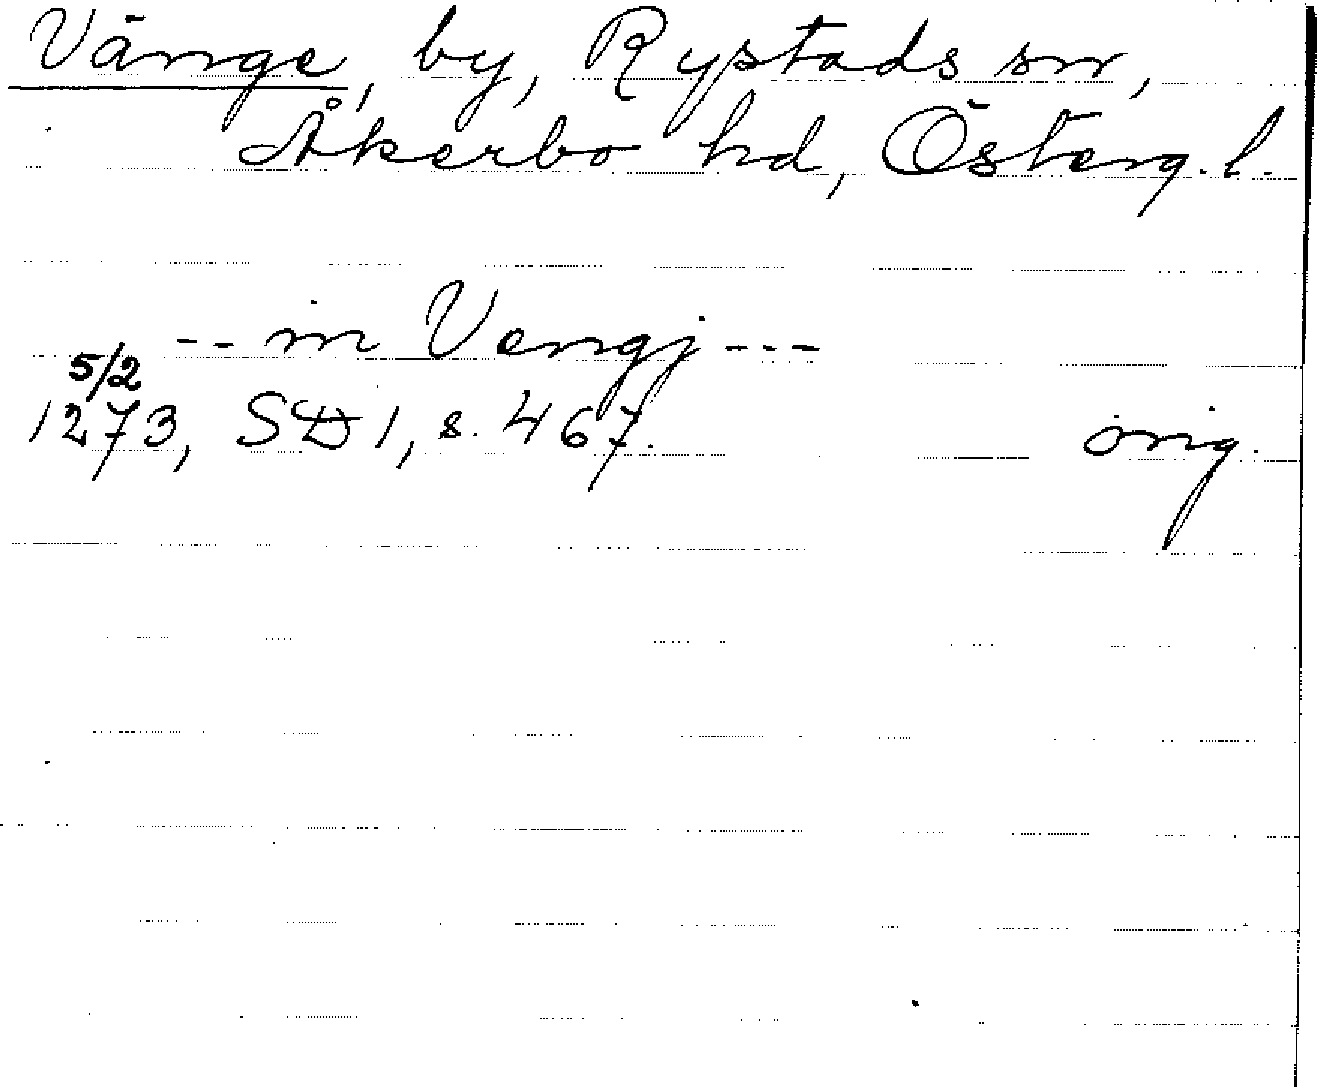 Vänge, by, Rystads sn,
Åkerbo hd, Österg. l.
-- in Vengj ---
5/2
1273, SD 1, s. 467.
orig.